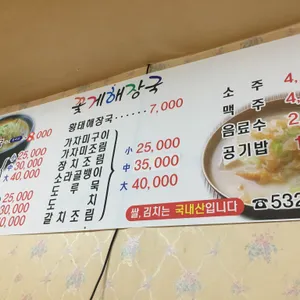 꽃게해장국
황태해장국······7,000
8,000
小 25,000
中 30,000
大 40,000
가자미구이
가자미조림
장치조림
소라골뱅이
도루묵
도치
갈치조림
小 25,000
中 35,000
大 40,000
소주
맥주
음료수
공기밥
쌀, 김치는 국내산입니다
☎532